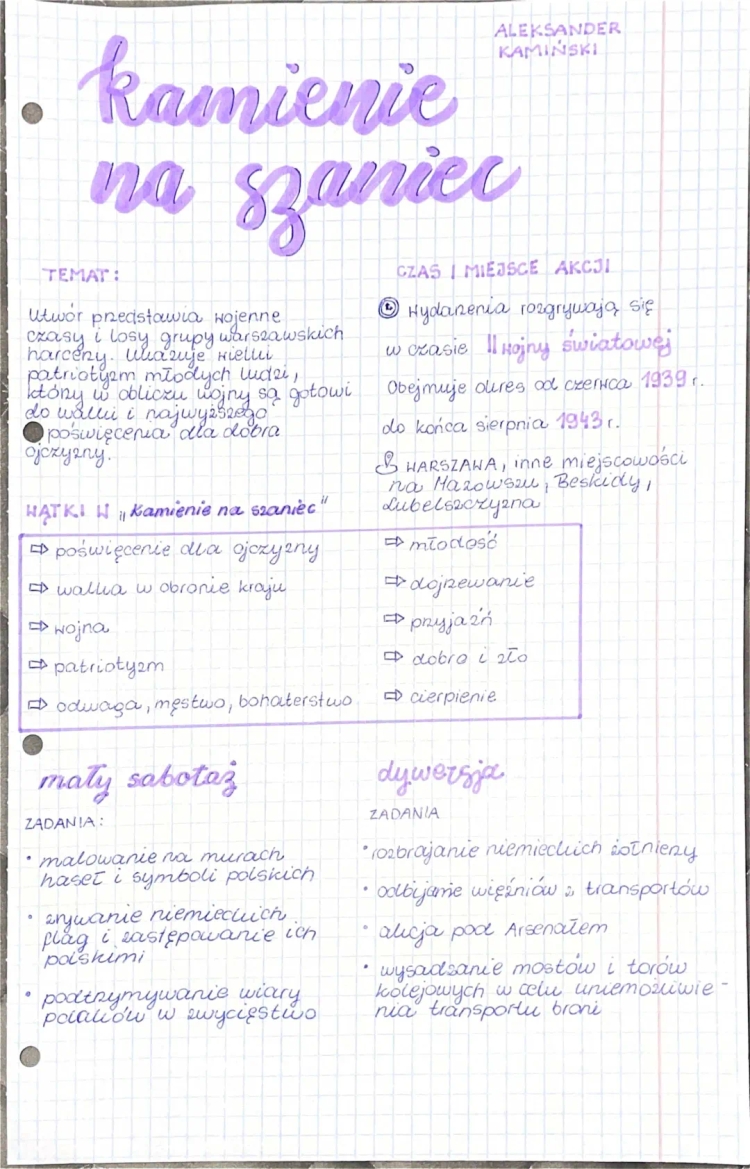 ALEKSANDER
KAMIŃSKI
kamienie
na szaniec
TEMAT:
Utwór przedstawia wojenne
czasy i losy grupy warszawskich
harcerzy. Ukazuje wielki
patriotyzm młodych ludzi,
którzy w obliczu wojny są gotowi
do walki i najwyższego
poświęcenia dla dobra
ojczyzny.
CZAS I MIEJSCE AKCJI
Wydarzenia rozgrywają się
w czasie II wojny światowej
Obejmuje okres od czerwca 1939 r.
do końca sierpnia 1943 r.
WARSZAWA, inne miejscowości
na Mazowszu, Beskidy,
Lubelszczyzna
WĄTKI W "Kamienie na szaniec"
⇨ poświęcenie dla ojczyzny
⇨ walka w obronie kraju
⇨ wojna
⇨ patriotyzm
⇨ odwaga, męstwo, bohaterstwo
⇨ młodość
⇨ dojrzewanie
⇨ przyjaźń
⇨ dobro i zło
⇨ cierpienie
mały sabotaż
ZADANIA:
• malowanie na murach
haseł i symboli polskich
• zrywanie niemieckich
flag i zastępowanie ich
polskimi
• podtrzymywanie wiary
polaków w zwycięstwo
dywersja
ZADANIA
• rozbrajanie niemieckich żołnierzy
• odbijanie więźniów z transportów
• akcja pod Arsenałem
• wysadzanie mostów i torów
kolejowych w celu uniemożliwie-
nia transportu broni